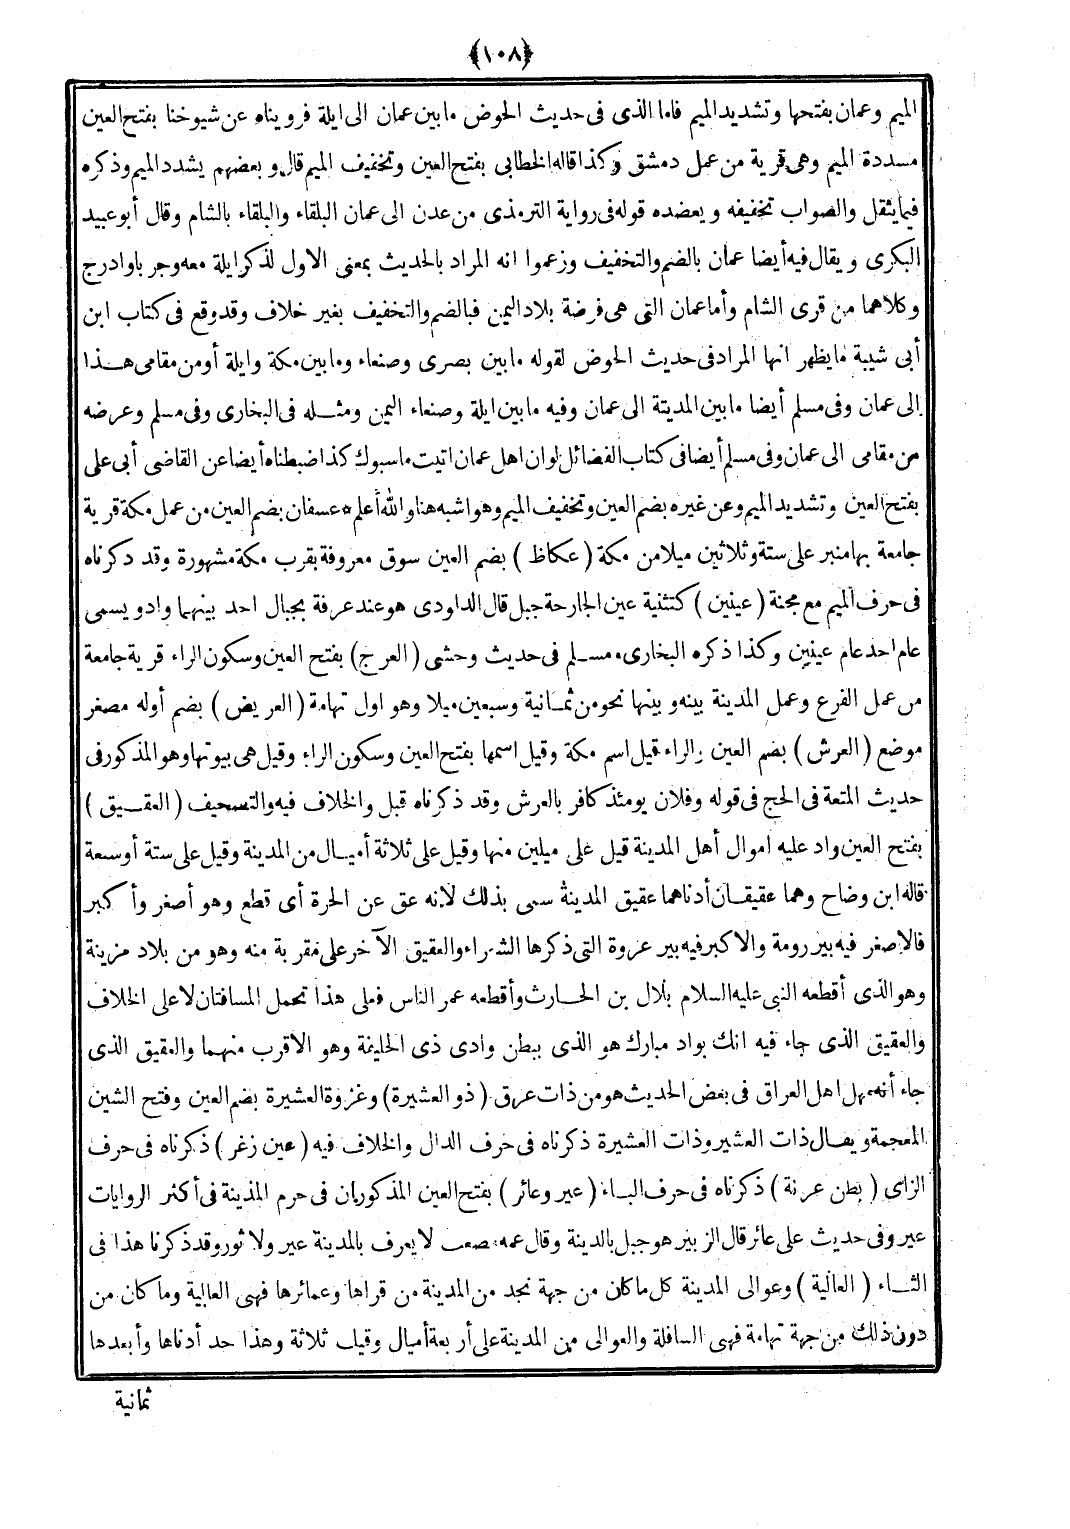 ﴿١٠٨﴾
الميم وعمان بفتحها وتشديد الميم فاما الذى فى حديث الحوض مابين عمان الى ايلة فرويناه عن شيوخنا بفتح العين
مسددة الميم وهى قرية من عمل دمشق وكذا قاله الخطابى بفتح العين وتخفيف الميم قال وبعضهم يشدد الميم وذكره
فيما يثقل والصواب تخفيفه ويعضده قوله فى رواية الترمذى من عدن الى عمان البلقاء والبلقاء بالشام وقال أبو عبيد
البكرى ويقال فيه أيضا عمان بالضم والتخفيف وزعموا انه المراد بالحديث بمعنى الاول لذكر ايلة معه وجر باواذرج
وكلاهما من قرى الشام وأما عمان التى هى فرضة بلاد اليمن فبالضم والتخفيف بغير خلاف وقد وقع فى كتاب ابن
أبى شيبة ما يظهر انها المراد فى حديث الحوض لقوله مابين بصرى وصنعاء ومابين مكة وايلة أو من مقامى هذا
الى عمان وفى مسلم أيضا مابين المدينة الى عمان وفيه مابين ايلة وصنعاء اليمن ومثله فى البخارى وفى مسلم وعرضه
من مقامى الى عمان وفى مسلم أيضا فى كتاب الفضائل لوان اهل عمان اتيت ماسبوك كذا ضبطناه أيضا عن القاضى أبى على
بفتح العين وتشديد الميم وعن غيره بضم العين وتخفيف الميم وهو اشبه هنا والله أعلم * عسفان بضم العين من عمل مكة قرية
جامعة بها منبر على ستة وثلاثين ميلا من مكة (عكاظ) بضم العين سوق معروفة بقرب مكة مشهورة وقد ذكرناه
فى حرف الميم مع مجنة (عينين) كتثنية عين الجارحة جبل قال الداودى هو عند عرفة بجبال احد بينهما واد ويسمى
عام احد عام عينين وكذا ذكره البخارى ومسلم فى حديث وحشى (العرج) بفتح العين وسكون الراء قرية جامعة
من عمل الفرع وعمل المدينة بينه وبينها نحو من ثمانية وسبعين ميلا وهو اول تهامة (العريض) بضم أوله مصغر
موضع (العرش) بضم العين والراء قيل اسم مكة وقيل اسمها بفتح العين وسكون الراء وقيل هى بيوتها وهو المذكور فى
حديث المتعة فى الحج فى قوله وفلان يومئذ كافر بالعرش وقد ذكرناه قبل والخلاف فيه والتصحيف (العقيق)
بفتح العين واد عليه اموال أهل المدينة قيل على ميلين منها وقيل على ثلاثة أميال من المدينة وقيل على ستة أو سبعة
قاله ابن وضاح وهما عقيقان أدناهما عقيق المدينة سمى بذلك لانه عق عن الحرة أى قطع وهو أصغر وأكبر
فالاصغر فيه بير رومة والاكبر فيه بير عروة التى ذكرها الشعراء والعقيق الآخر على مقربة منه وهو من بلاد مزينة
وهو الذى أقطعه النبى عليه السلام بلال بن الحارث وأقطعه عمر الناس فعلى هذا تحمل المسافتان لا على الخلاف
والعقيق الذى جاء فيه انك بواد مبارك هو الذى ببطن وادى ذى الحليفة وهو الاقرب منهما والعقيق الذى
جاء أنه مهل اهل العراق فى بعض الحديث هو من ذات عرق (ذو العشيرة) وغزوة العشيرة بضم العين وفتح الشين
المعجمة ويقال ذات العشير وذات العشيرة ذكرناه فى حرف الدال والخلاف فيه (عين زغر) ذكرناه فى حرف
الزاى (بطن عرنة) ذكرناه فى حرف الباء (عير وعائر) بفتح العين المذكوران فى حرم المدينة فى أكثر الروايات
عير وفى حديث على عائر قال الزبير هو جبل بالمدينة وقال عمه مصعب لا يعرف بالمدينة عير ولا ثور وقد ذكرنا هذا فى
الثاء (العالية) وعوالى المدينة كل ماكان من جهة نجد من المدينة من قراها وعمائرها فهى العالية وماكان من
دون ذلك من جهة تهامة فهى السافلة والعوالى من المدينة على أربعة أميال وقيل ثلاثة وهذا حد أدناها وأبعدها
ثمانية